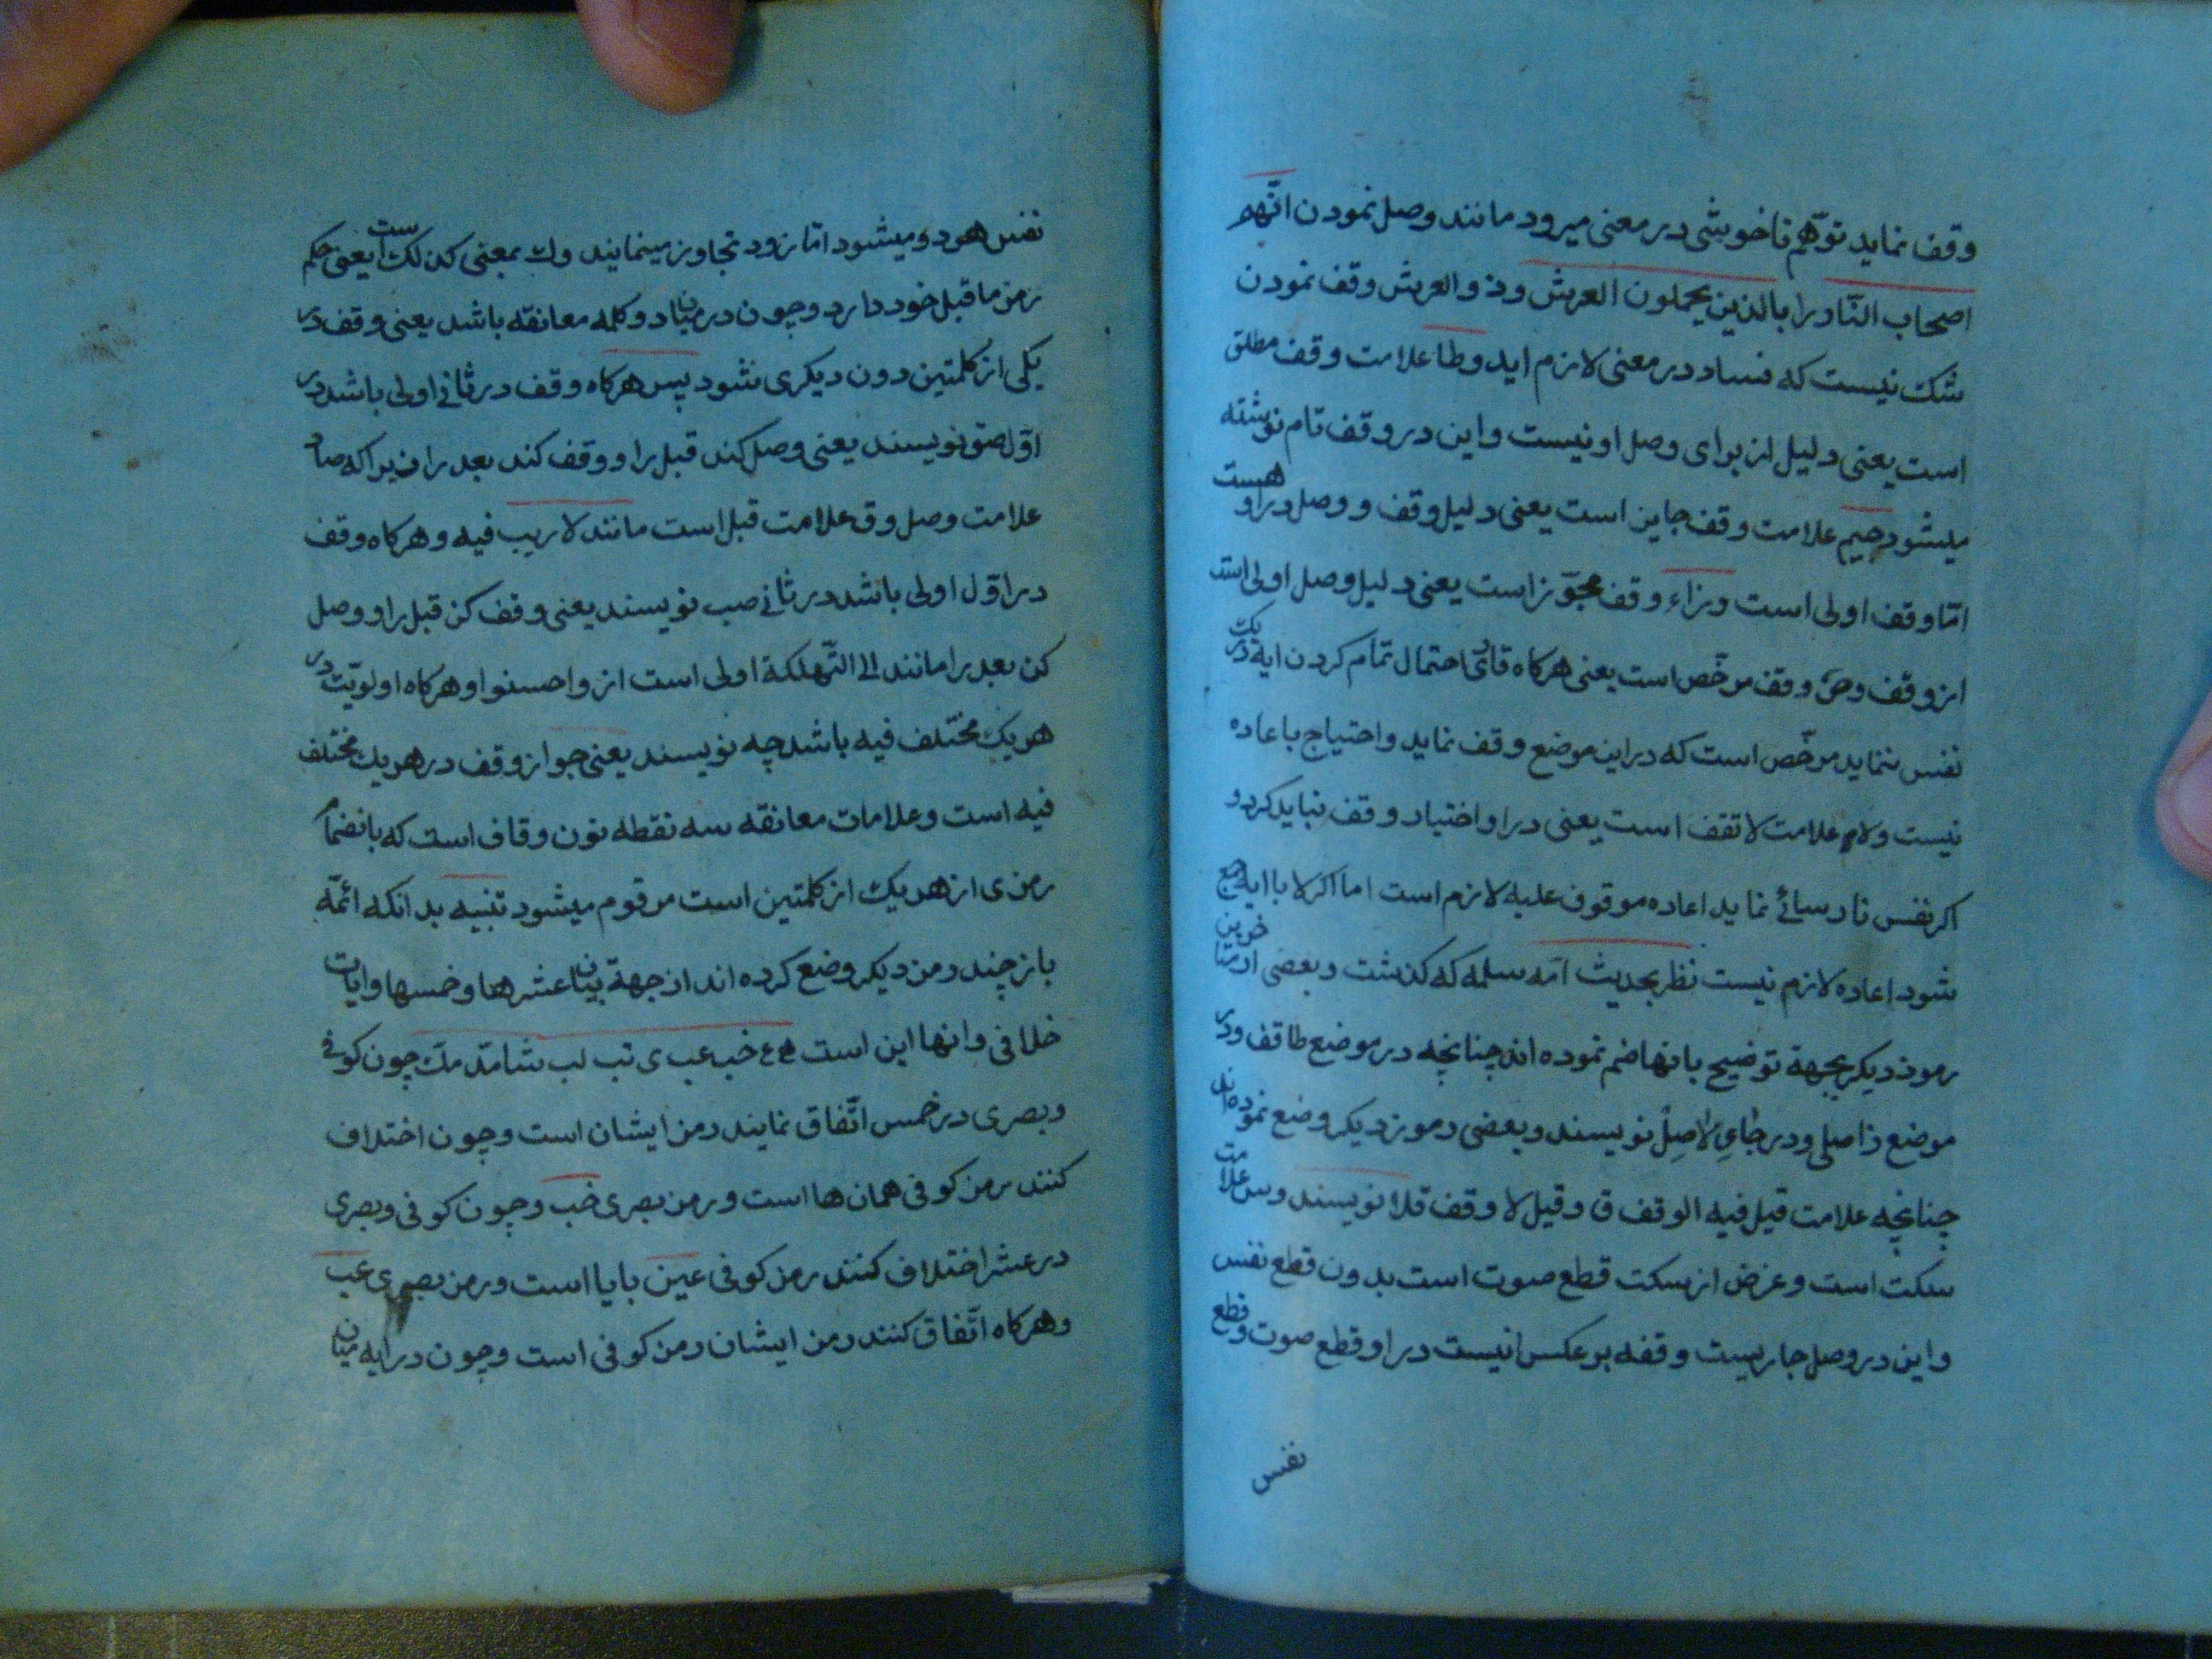 وقف نماید توّهم ناخوشی در معنی میرود مانند وصل نمودن انّهم
اصحاب النّار را بالذین یحملون العرش و ذو العرش وقف نمودن
شک نیست که فساد در معنی لازم اید و طا علامت وقف مطلق
است یعنی دلیل از برای وصل او نیست و این در وقف تام نوشته
میشود جیم علامت وقف جایز است یعنی دلیل وقف و وصل در او هست
امّا وقف اولی است و زاء وقف مجوّز است یعنی دلیل وصل اولی است
از وقف و ص وقف مرخّص است یعنی هرکاه قاری احتمال تمام کردن ایه در یک
نفس ننماید مرخّص است که در این موضع وقف نماید و احتیاج باعاده
نیست و لا علامت لا تقف است یعنی در او اختیار وقف نباید کرد و
اکر نفس نارسائے نماید اعاده موقوف علیه لازم است اما اکر لا با ایه جمع
شود اعاده لازم نیست نظر بحدیث امّ سلمه که کذشت و بعضی از متاخرین
رموز دیکر بجهة توضیح بانها ضم نموده اند چنانچه در موضع ط اقف و در
موضع ز اصلی و در جای لا صِلْ نویسند و بعضی رموز دیکر وضع نموده اند
چنانچه علامت قیل فیه الوقف ق و قیل لا وقف قلا نویسند و س علامت
سکت است و غرض از سکت قطع صوت است بدون قطع نفس
و این در وصل جاریست و وقفه بر عکس انیست در او قطع صوت و قطع
نفس
نفس هر دو میشود امّا زود تجاوز مینمایند و ک بمعنی کذلک است یعنی حکم
رمز ما قبل خود دارد و چون در میان دو کلمه معانقه باشد یعنی وقف در
یکی از کلمتین دون دیکری شود پس هرکاه وقف در ثانی اولی باشد در
اوّل صق نویسند یعنی وصل کند قبل را و وقف کند بعد را زیرا که صاد
علامت وصل و ق علامت قبل است مانند لا ریب فیه و هرکاه وقف
در اوّل اولی باشد در ثانی صب نویسند یعنی وقف کن قبل را و وصل
کن بعد را مانند الی التّهلکة اولی است از و احسنوا و هرکاه اولویّت در
هر یک مختلف فیه باشد چه نویسند یعنی جواز وقف در هر یک مختلف
فیه است و علامات معانقه سه نقطه نون و قاف است که بانضمام
رمزی از هر یک از کلمتین است مرقوم میشود تنبیه بدانکه ائمّه
باز چند رمز دیکر وضع کرده اند از جهة بیان عشرها و خمسها و ایات
خلافی و انها این است ه ع خب عب ی تب لب شا مد مک چون کوفی
و بصری در خمس اتّفاق نمایند رمز ایشان است و چون اختلاف
کنند رمز کوفی همان ها است و رمز بصری خب و چون کوفی و بصری
در عشر اختلاف کنند رمز کوفی عین با یا است و رمز بصری عب
و هرکاه اتّفاق کنند رمز ایشان رمز کوفی است و چون در ایه میان